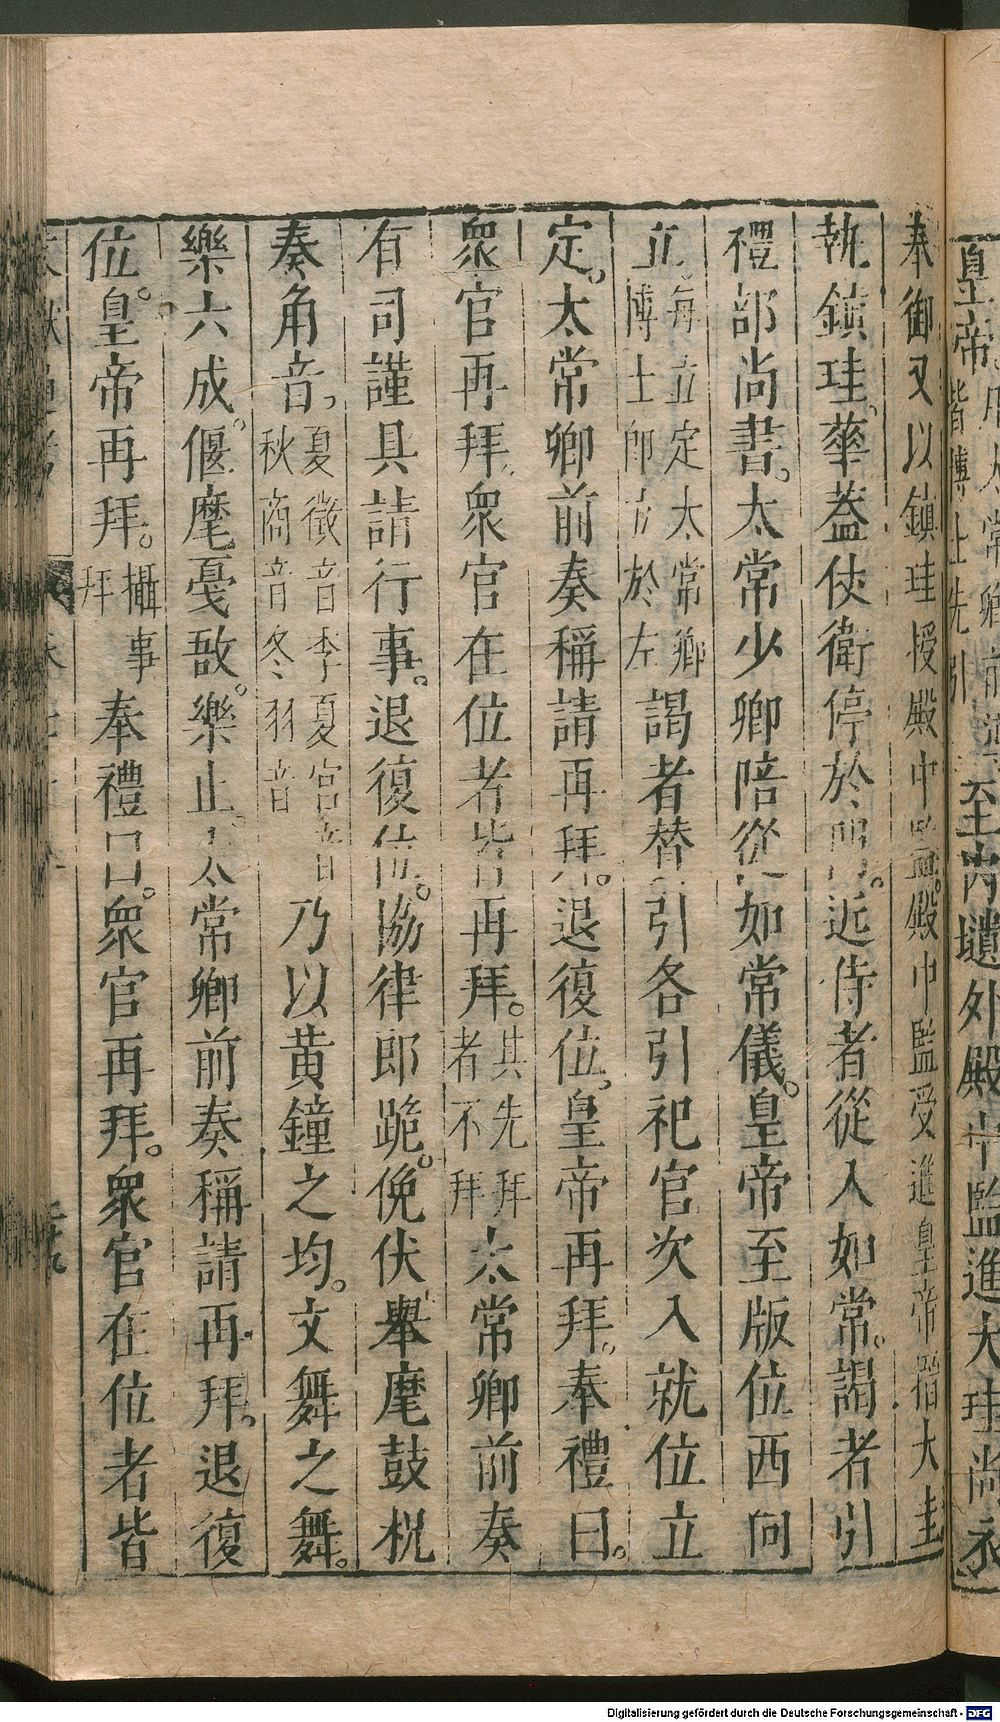 皇帝皆博士先引至內壝外殿中監進大珪尚衣
奉御又以鎮珪授殿中監。殿中監受進皇帝搢大圭
執鎮珪。華蓋仗衛停於門。近侍者從入如常。謁者引
禮部尚書。太常少卿陪從如常儀。皇帝至版位西向
立。每立定太常卿博士即立於左謁者替引各引祀官次入就位立
定。太常卿前奏稱請再拜。退復位。皇帝再拜。奉禮曰。
衆官再拜。衆官在位者皆再拜。其先拜者不拜太常卿前奏
有司謹具請行事。退復位。協律郎跪。俛伏舉麾鼓柷
奏角音。夏徵音季夏宮音秋商音冬羽音乃以黃鐘之均。文舞之舞。
樂六成。偃麾戞敔。樂止太常卿前奏稱請再拜。退復
位。皇帝再拜。攝事拜奉禮曰。衆官再拜。衆官在位者皆
Digitalisierung gefördert durch die Deutsche Forschungsgemeinschaft - DFG